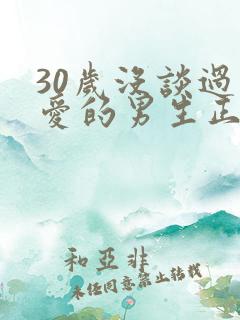 30歲沒談過
愛的男生正
和亞非
未任同意禁止转载